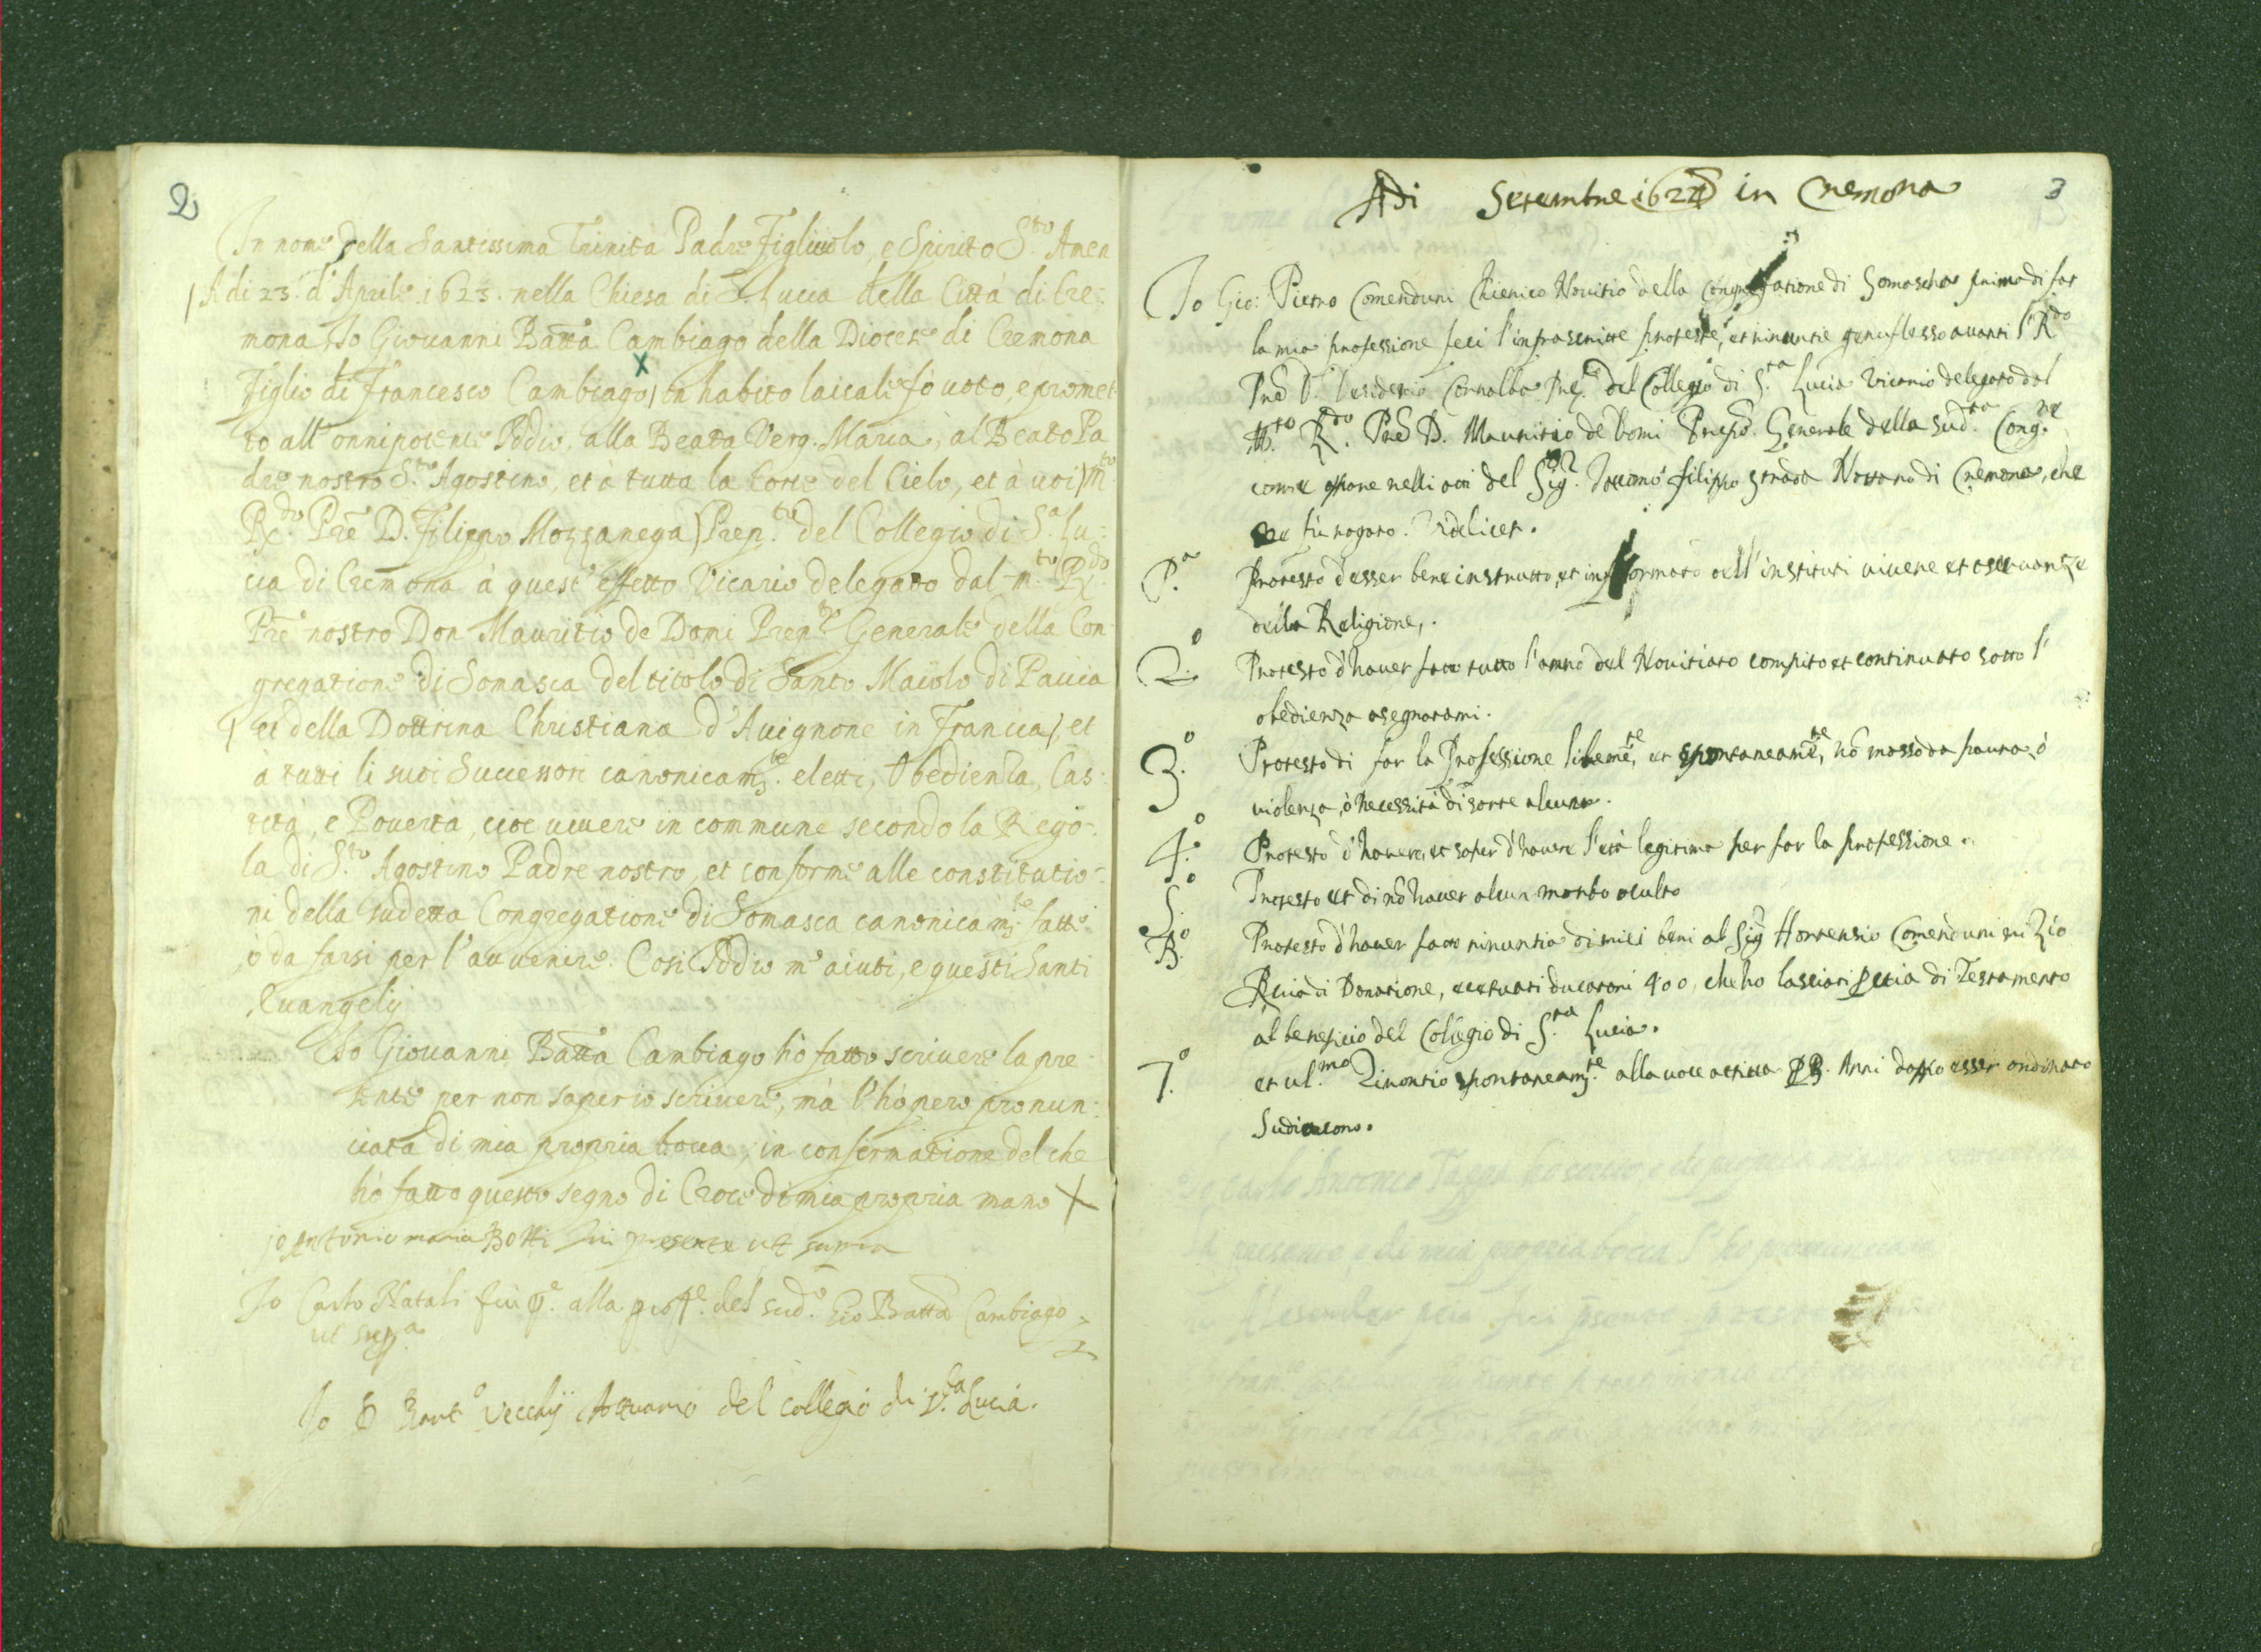 2
In nome della Santissima Trinità Padre Figliuolo, e Spirito S.to Amen
A di 23. d'Aprile 1623. nella Chiesa di S. Lucia della Città di Cre:
mona Io Giovanni Batta Cambiago della Diocese di Cremona
figlio di Francesco Cambiago, in habito laicale fò voto, e promet
to all'onnipotente Iddio, alla Beata Verg. Maria, al Beato Pa
dre nostro S.to Agostino, et à tutta la Corte del Cielo, et à voi M.to
R.do Pre D. Filippo Mozzanega Prep.to del Collegio di S.a Lu:
cia di Cremona à quest'effetto Vicario delegato dal m.to R.do
Pre nostro Don Mauritio de Domi Prep.to Generale della Con
gregatione di Somasca del titolo di Santo Maiolo di Pavia
et della Dottrina Christiana d'Avignone in Francia, et
à tutti li suoi Successori canonicam.te eletti, Obedienza, Cas:
tità, e Povertà, cioe vivere in commune secondo la Rego:
la di S.to Agostino Padre nostro, et conforme alle constitutio:
ni della sudetta Congregatione di Somasca canonicam.te fatte
ò da farsi per l'avvenire. Così Iddio m'aiuti, e questi Santi
Evangelij
Io Giovanni Batta Cambiago hò fatto scrivere la pre
sente per non saper io scrivere, mà l'hò però pronun:
ciata di mia propria bocca, in confirmatione del che
hò fatto questo segno di Croce di mia propria mano X
io Antonio maria Botti fui presente ut supra
Io Carlo Natali fui p.e alla prof.e del sud.o Gio Batta Cambiago
ut supp.a
Io D Bart.o Vecchij Attuario del collegio di S.ta Lucia.
3
Adi Setembre 1624 in Cremona
Io Gio: Pietro Comenduni Chierico Novitio della Congregatione di Somascha prima di far
la mia professione feci l'infrascritte proteste, et rinuntie genuflesso avanti l R.do
Pre D. Desiderio Cornalba Prep.to del Collegio di S.ta Lucia Vicario delegato dal
M.to R.do Pre D. Mauritio de Domi Prepo. Generale della Sud.ta Cong.ne
come appare nelli atti del Sig.r Iacomo filippo strada Nottaro di Cremona, che
ne fu rogato. Videlicet.
P.a Protesto d'esser bene instrutto, et informato dell'instituti vivere et osservantze
della Religione,.
2.o Protesto d'haver fatto tutto l'anno del Novitiato compito et continuato sotto l'
obedienza asegnatami.
3.o Protesto di far la Professione liberame.te, et spontaneame.te, nō mosso da paura ò
violenza, ò necessità di sorte alcuna.
4.o Protesto d'havere, et saper d'havere l'età legitima per far la professione.
5.o Protesto et di nō haver alcun morbo oculto
6.o Protesto d'haver fatto rinuntia di miei beni al Sig Hortensio Comenduni mi Zio
P via di Donatione, eccetuati ducatoni 400, che ho lasciati P via di Testamento
al beneficio del Collegio di S.ta Lucia.
7.o et ul.mo Rinontio spontaneam.te alla voce attiva P 3. Anni doppo esser ordinato
Sudiacono.